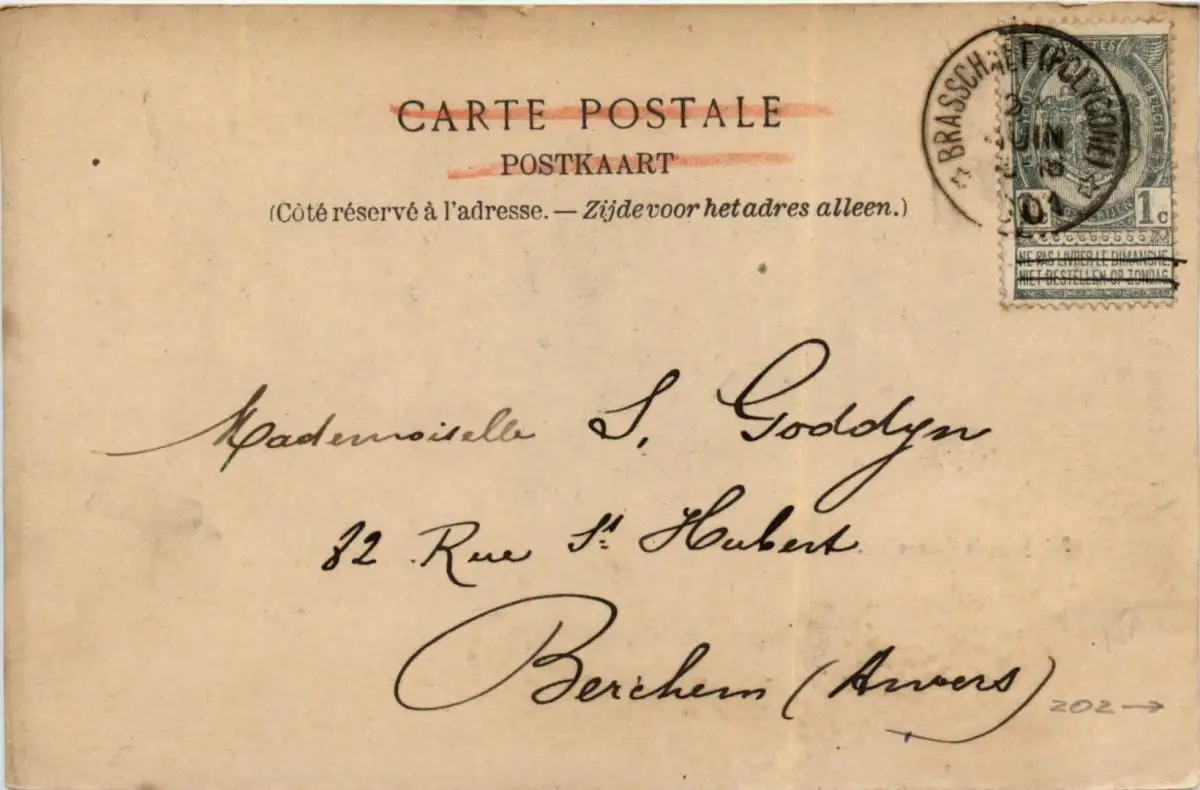 CARTE POSTALE
POSTKAART
(Côté réservé à l'adresse. — Zijde voor het adres alleen.)
BRASSCHAET (POLYGONE)
JUIN
01
POSTES
BELGIE
1c
NE PAS LIVRER LE DIMANCHE
NIET BESTELLEN OP ZONDAG
Mademoiselle S. Goddyn
82 Rue St Hubert
Berchem (Anvers)
202→